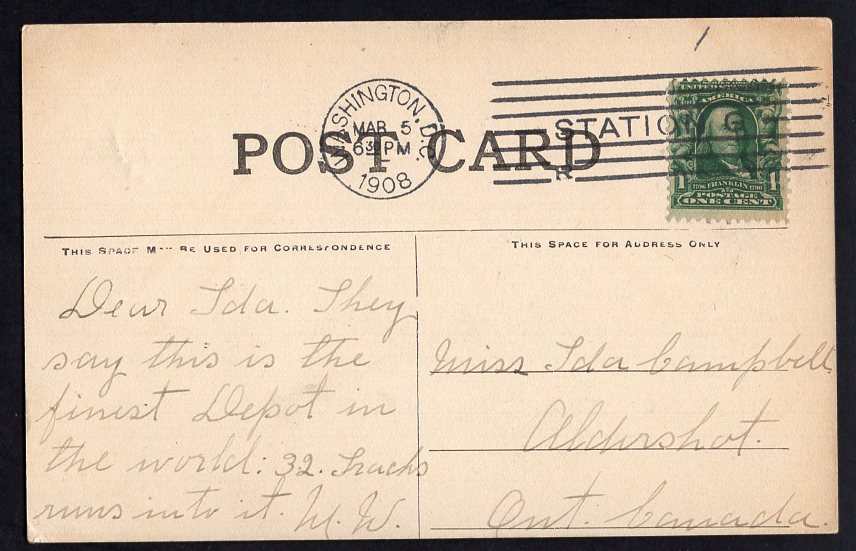 WASHINGTON, D.C.
MAR 5
6 30 PM
1908
STATION G
UNITED STATES
AMERICA
1706 FRANKLIN 1790
1 POSTAGE 1
ONE CENT
POST CARD
THIS SPACE MAY BE USED FOR CORRESPONDENCE
THIS SPACE FOR ADDRESS ONLY
Dear Ida. They
say this is the
finest Depot in
the world: 32. tracks
runs into it. M. W.
Miss Ida Campbell
Aldershot.
Ont. Canada.